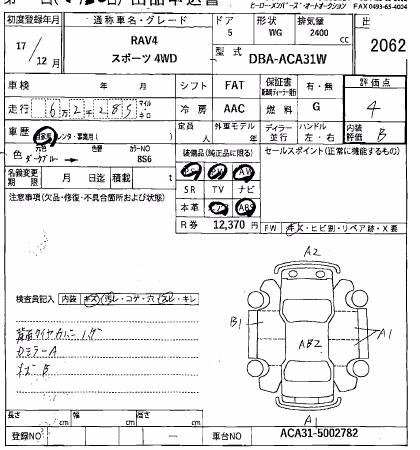 ヒーロー・メンバーズ・オートオークション FAX0493-65-4024
初度登録年月 通称車名・グレード ドア 形状 排気量 出
17/12 RAV4 5 WG 2400 cc 2062
スポーツ 4WD 型式 DBA-ACA31W
車検 年 月 シフト FAT 保証書 有・無 評価点
走行 6万2千285 マイル キロ 冷房 AAC 燃料 G 4
車歴 自家用 レンタ・事業用( ) 定員 人 外車モデル 年 ディーラー 並行 ハンドル 左・右 内装評価 B
色 元色 ダークブルー 色替 カラーNO 8S6 装備品(純正品に限る) セールスポイント(正常に機能するもの)
PS PW AW
名義変更期限 月 日迄 積載 t SR TV ナビ
注意事項(欠品・修復・不具合箇所および状態) 本革 エアB ABS
R券 12,370 円 FW キズ・ヒビ割・リペア跡・X要
A2
検査員記入 内装 キズ・汚レ・コゲ・穴・スレ・キレ
B1 A1
背面タイヤカバー
AB2
ドミラーA
A
長さ cm 幅 cm 高さ cm
登録NO ― 車台NO ACA31-5002782